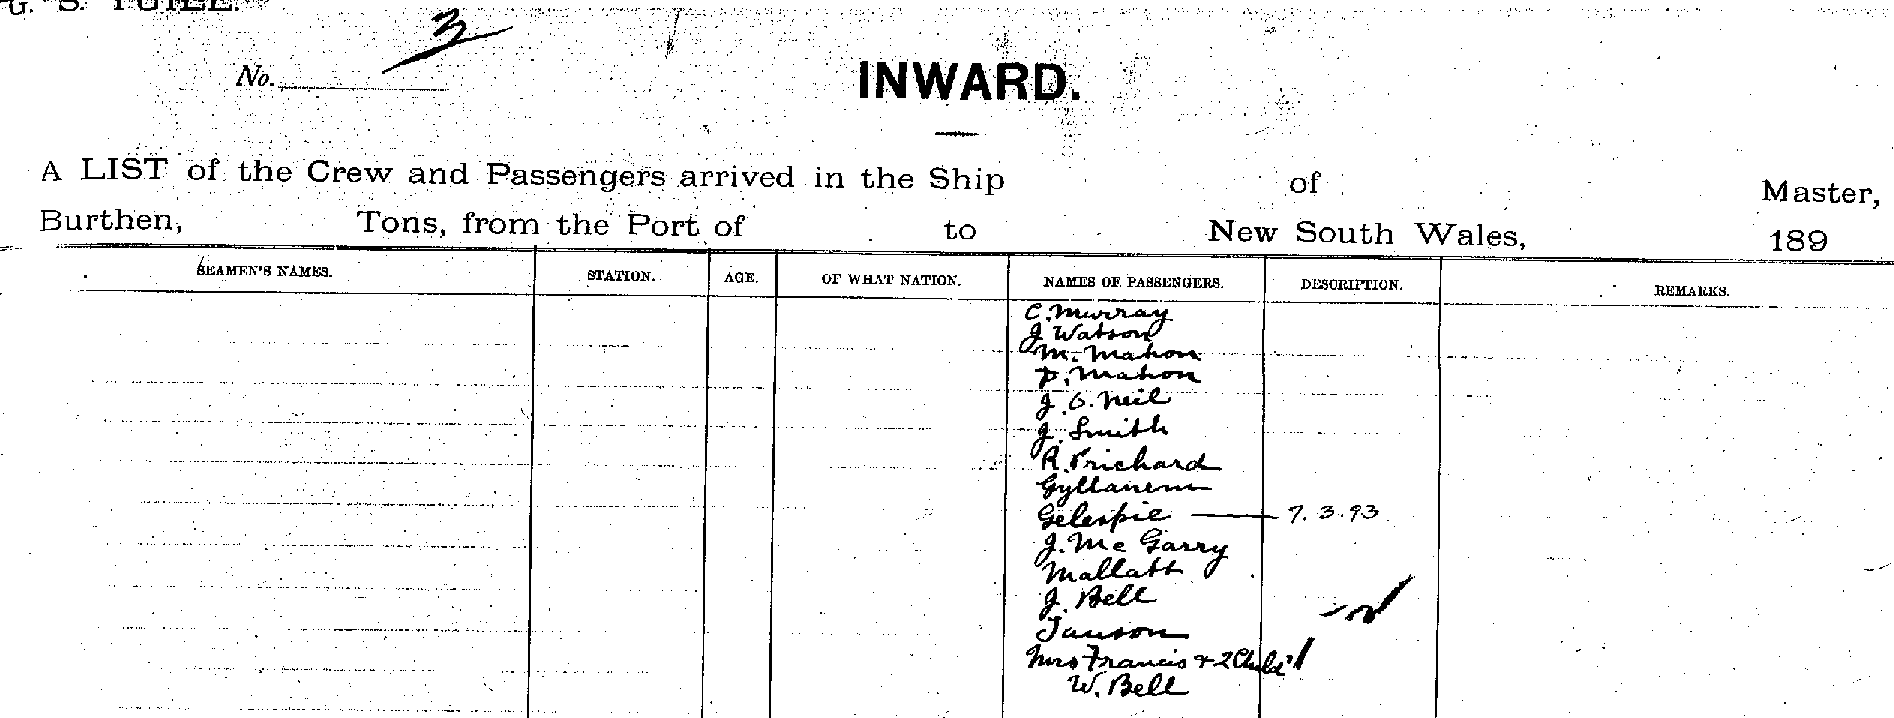 G. S. YUILL.
No. 3
INWARD.
A LIST of the Crew and Passengers arrived in the Ship of Master,
Burthen, Tons, from the Port of to New South Wales, 189
SEAMEN'S NAMES. STATION. AGE. OF WHAT NATION. NAMES OF PASSENGERS. DESCRIPTION. REMARKS.
C. Murray
J Watson
M. Mahon
P. Mahon
J. O. Neil
J. Smith
R. Prichard
Gyllanem
Gelespie — 7. 3. 93
J. Mc Garry
Mallatt
J. Bell
Janson
Mrs Francis + 2 Child
W. Bell